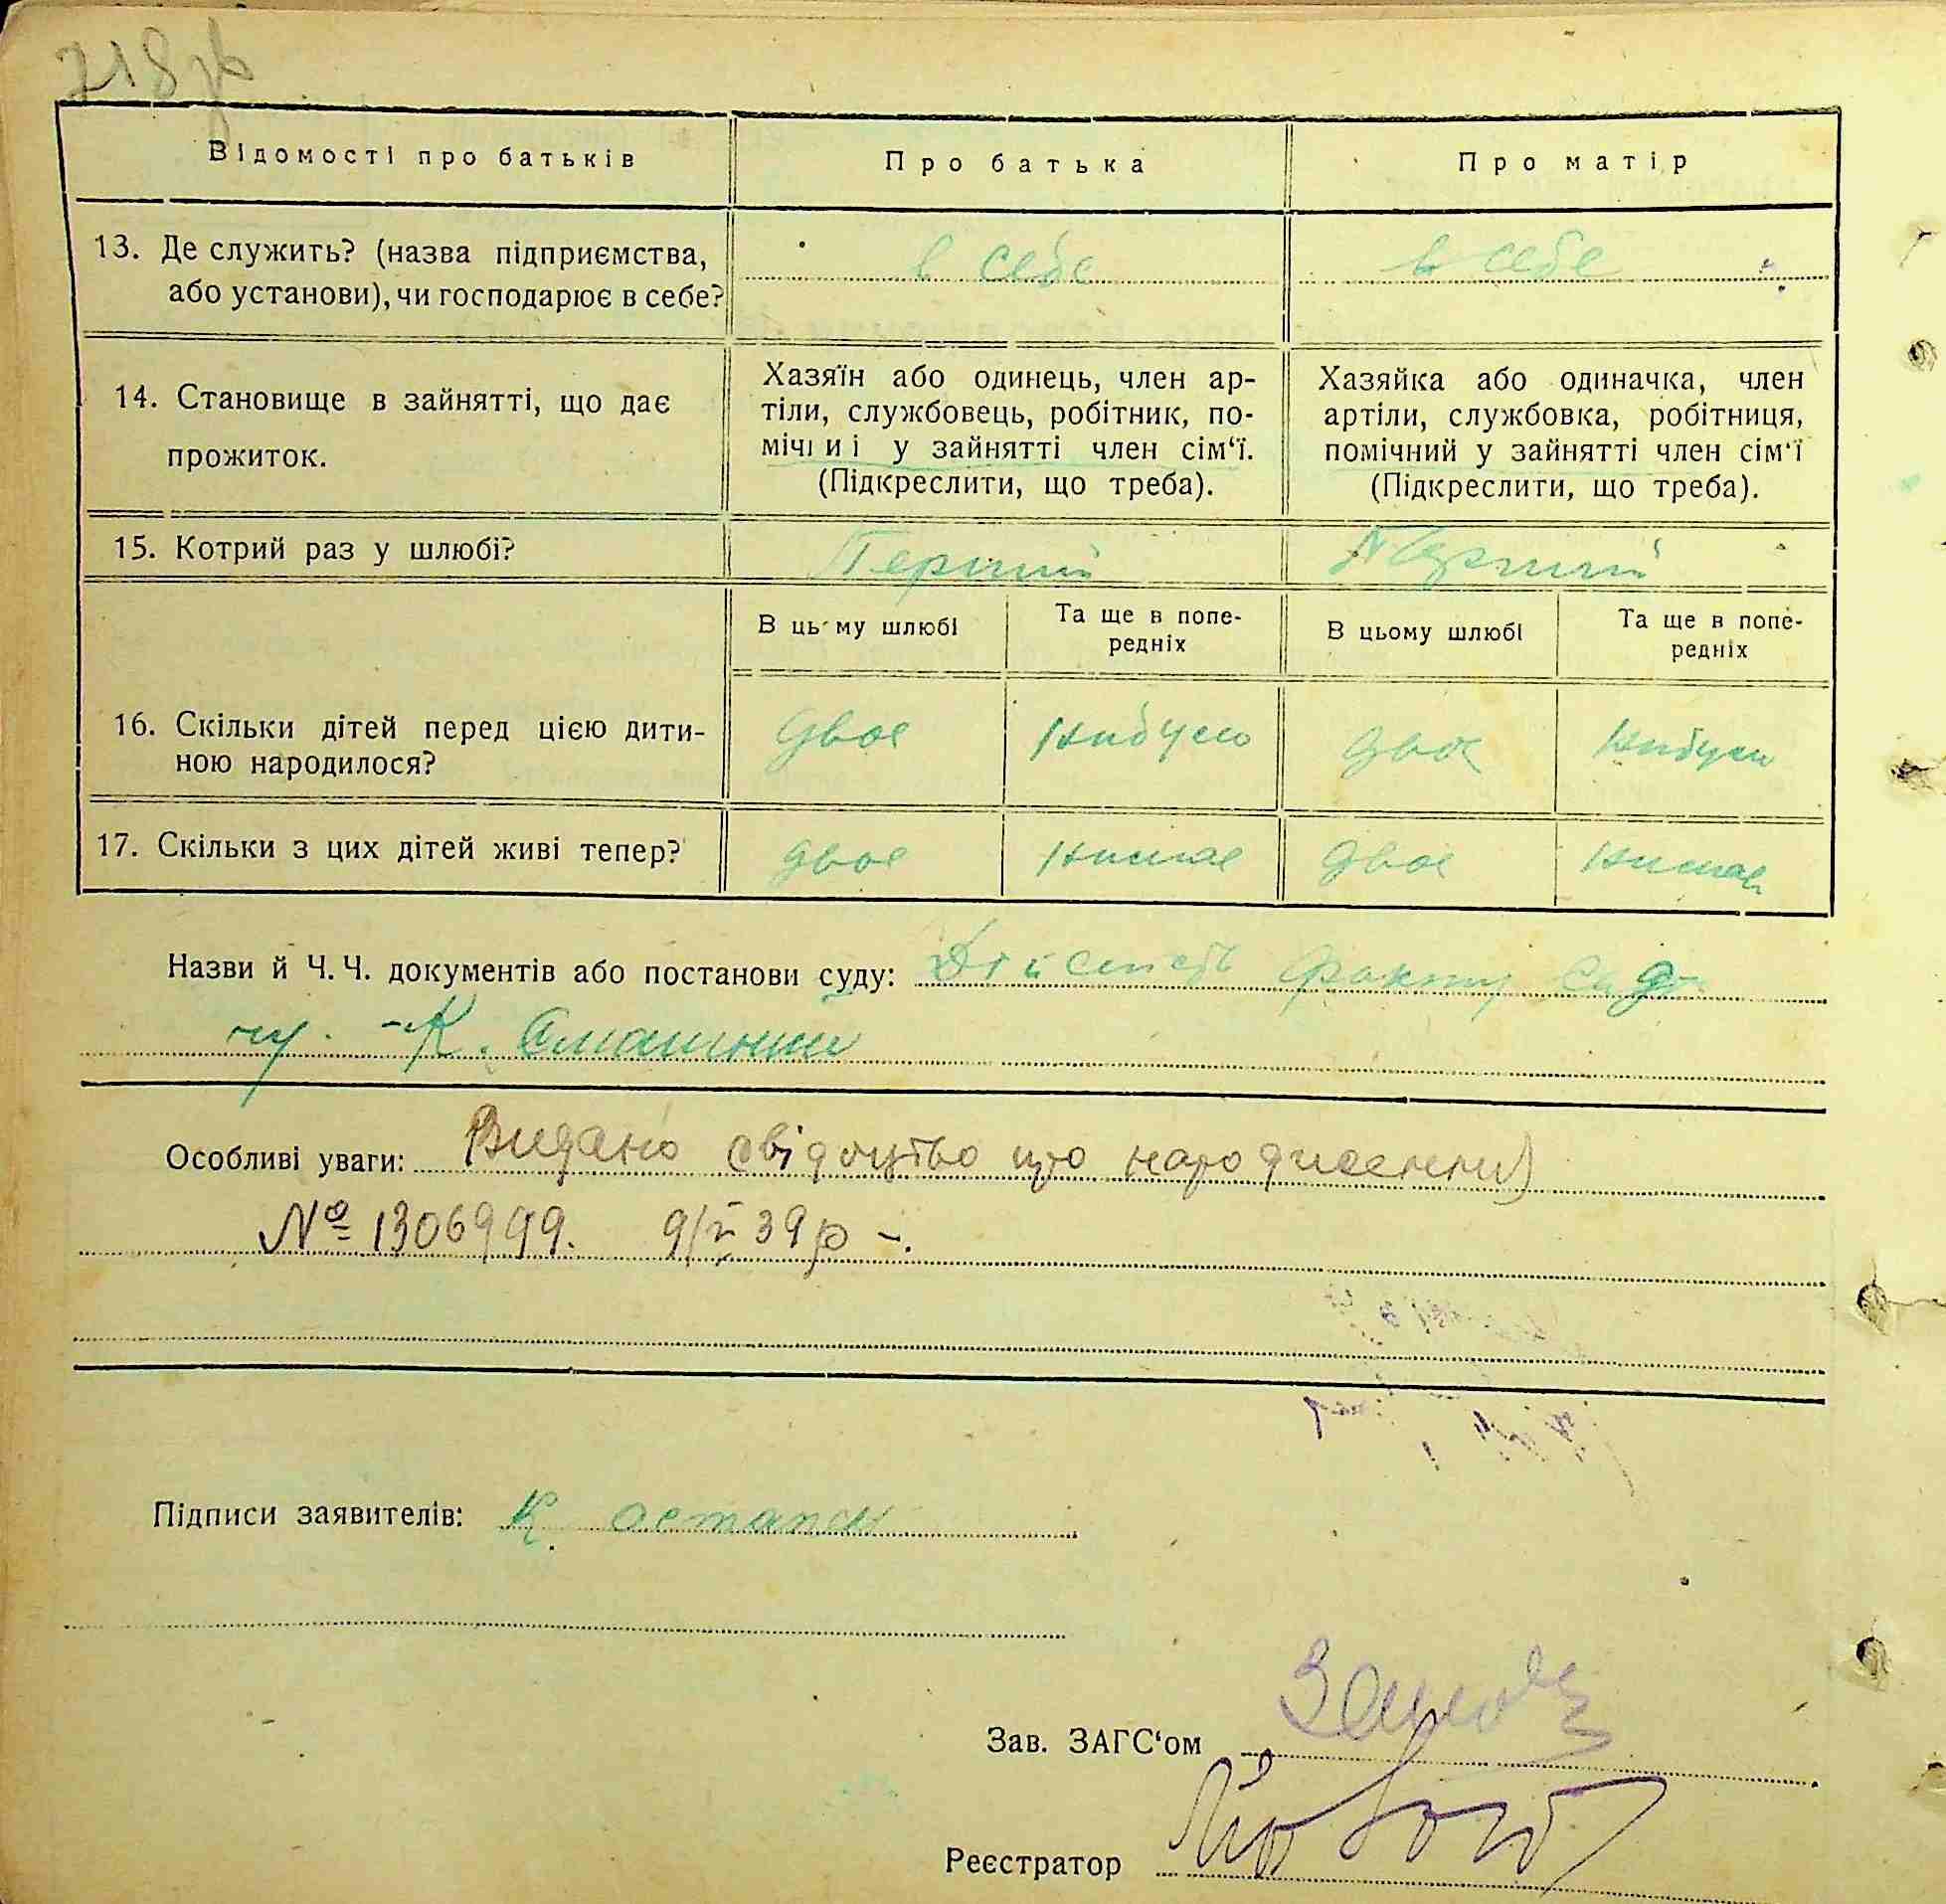 718зв
Відомості про батьків
Про батька
Про матір
13. Де служить? (назва підприємства,
або установи), чи господарює в себе?
в себе
в себе
14. Становище в зайнятті, що дає
прожиток.
Хазяїн або одинець, член ар-
тіли, службовець, робітник, по-
мічниі у зайнятті член сім‘ї.
(Підкреслити, що треба).
Хазяйка або одиначка, член
артіли, службовка, робітниця,
помічний у зайнятті член сім‘ї
(Підкреслити, що треба).
15. Котрий раз у шлюбі?
Перший
Перший
В цьму шлюбі
Та ще в попе-
редніх
В цьому шлюбі
Та ще в попе-
редніх
16. Скільки дітей перед цією дити-
ною народилося?
двое
нибуло
двое
нибуло
17. Скільки з цих дітей живі тепер?
двое
нимае
двое
нимае
Назви й Ч.Ч. документів або постанови суду: Дійсність факту
К.
Особливі уваги: Видано свідоцтво про народження
№ 1306999. 39р -.
Підписи заявителів: К остапец
Зав. ЗАГС‘ом
Реєстратор